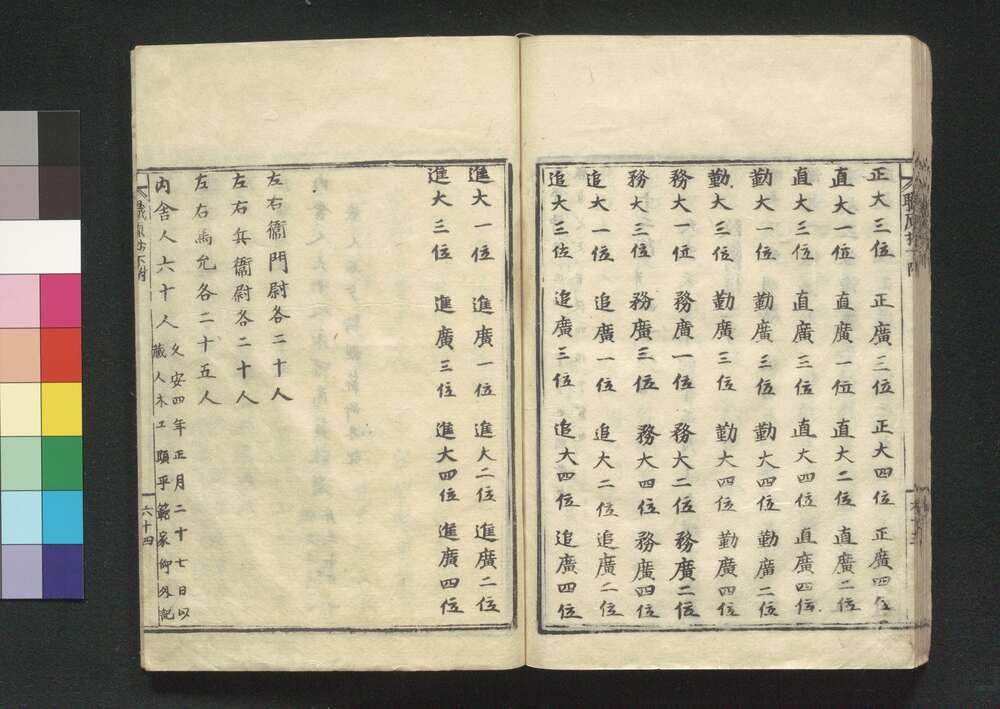 正大三位 正廣三位 正大四位 正廣四位
直大一位 直廣一位 直大二位 直廣二位
直大三位 直廣三位 直大四位 直廣四位
勤大一位 勤廣三位 勤大四位 勤廣二位
勤大三位 勤廣三位 勤大四位 勤廣四位
務大一位 務廣一位 務大二位 務廣二位
務大三位 務廣三位 務大四位 務廣四位
追大一位 追廣一位 追大二位 追廣二位
追大三位 追廣三位 追大四位 追廣四位
進大一位 進廣一位 進大二位 進廣二位
進大三位 進廣三位 進大四位 進廣四位
左右衞門尉各二十人
左右兵衞尉各二十人
左右馬允各二十五人
内舍人六十人
久安四年正月二十七日以
藏人木工頭平範家仰外記
六十四